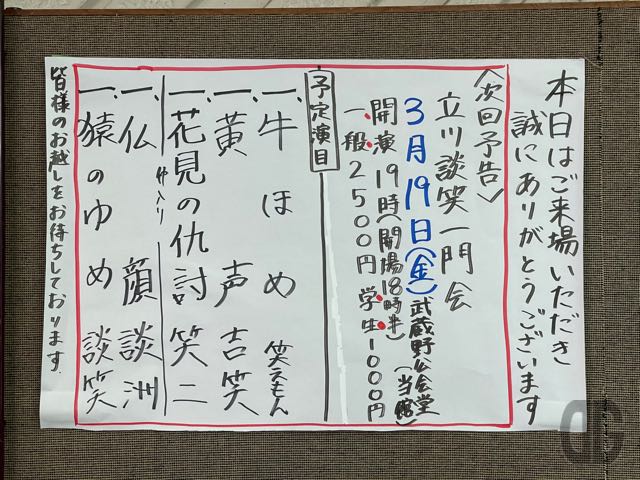 本日はご来場いただき
誠にありがとうございます
〈次回予告〉
立川談笑一門会
3月19日(金)武蔵野公会堂
(当館)
開演19時(開場18時半)
一般2500円 学生1000円
予定演目
一、牛ほめ 笑えもん
一、黄声 吉笑
一、花見の仇討 笑二
仲入り
一、仏顔 談洲
一、猿のゆめ 談笑
皆様のお越しをお待ちしております.
DG